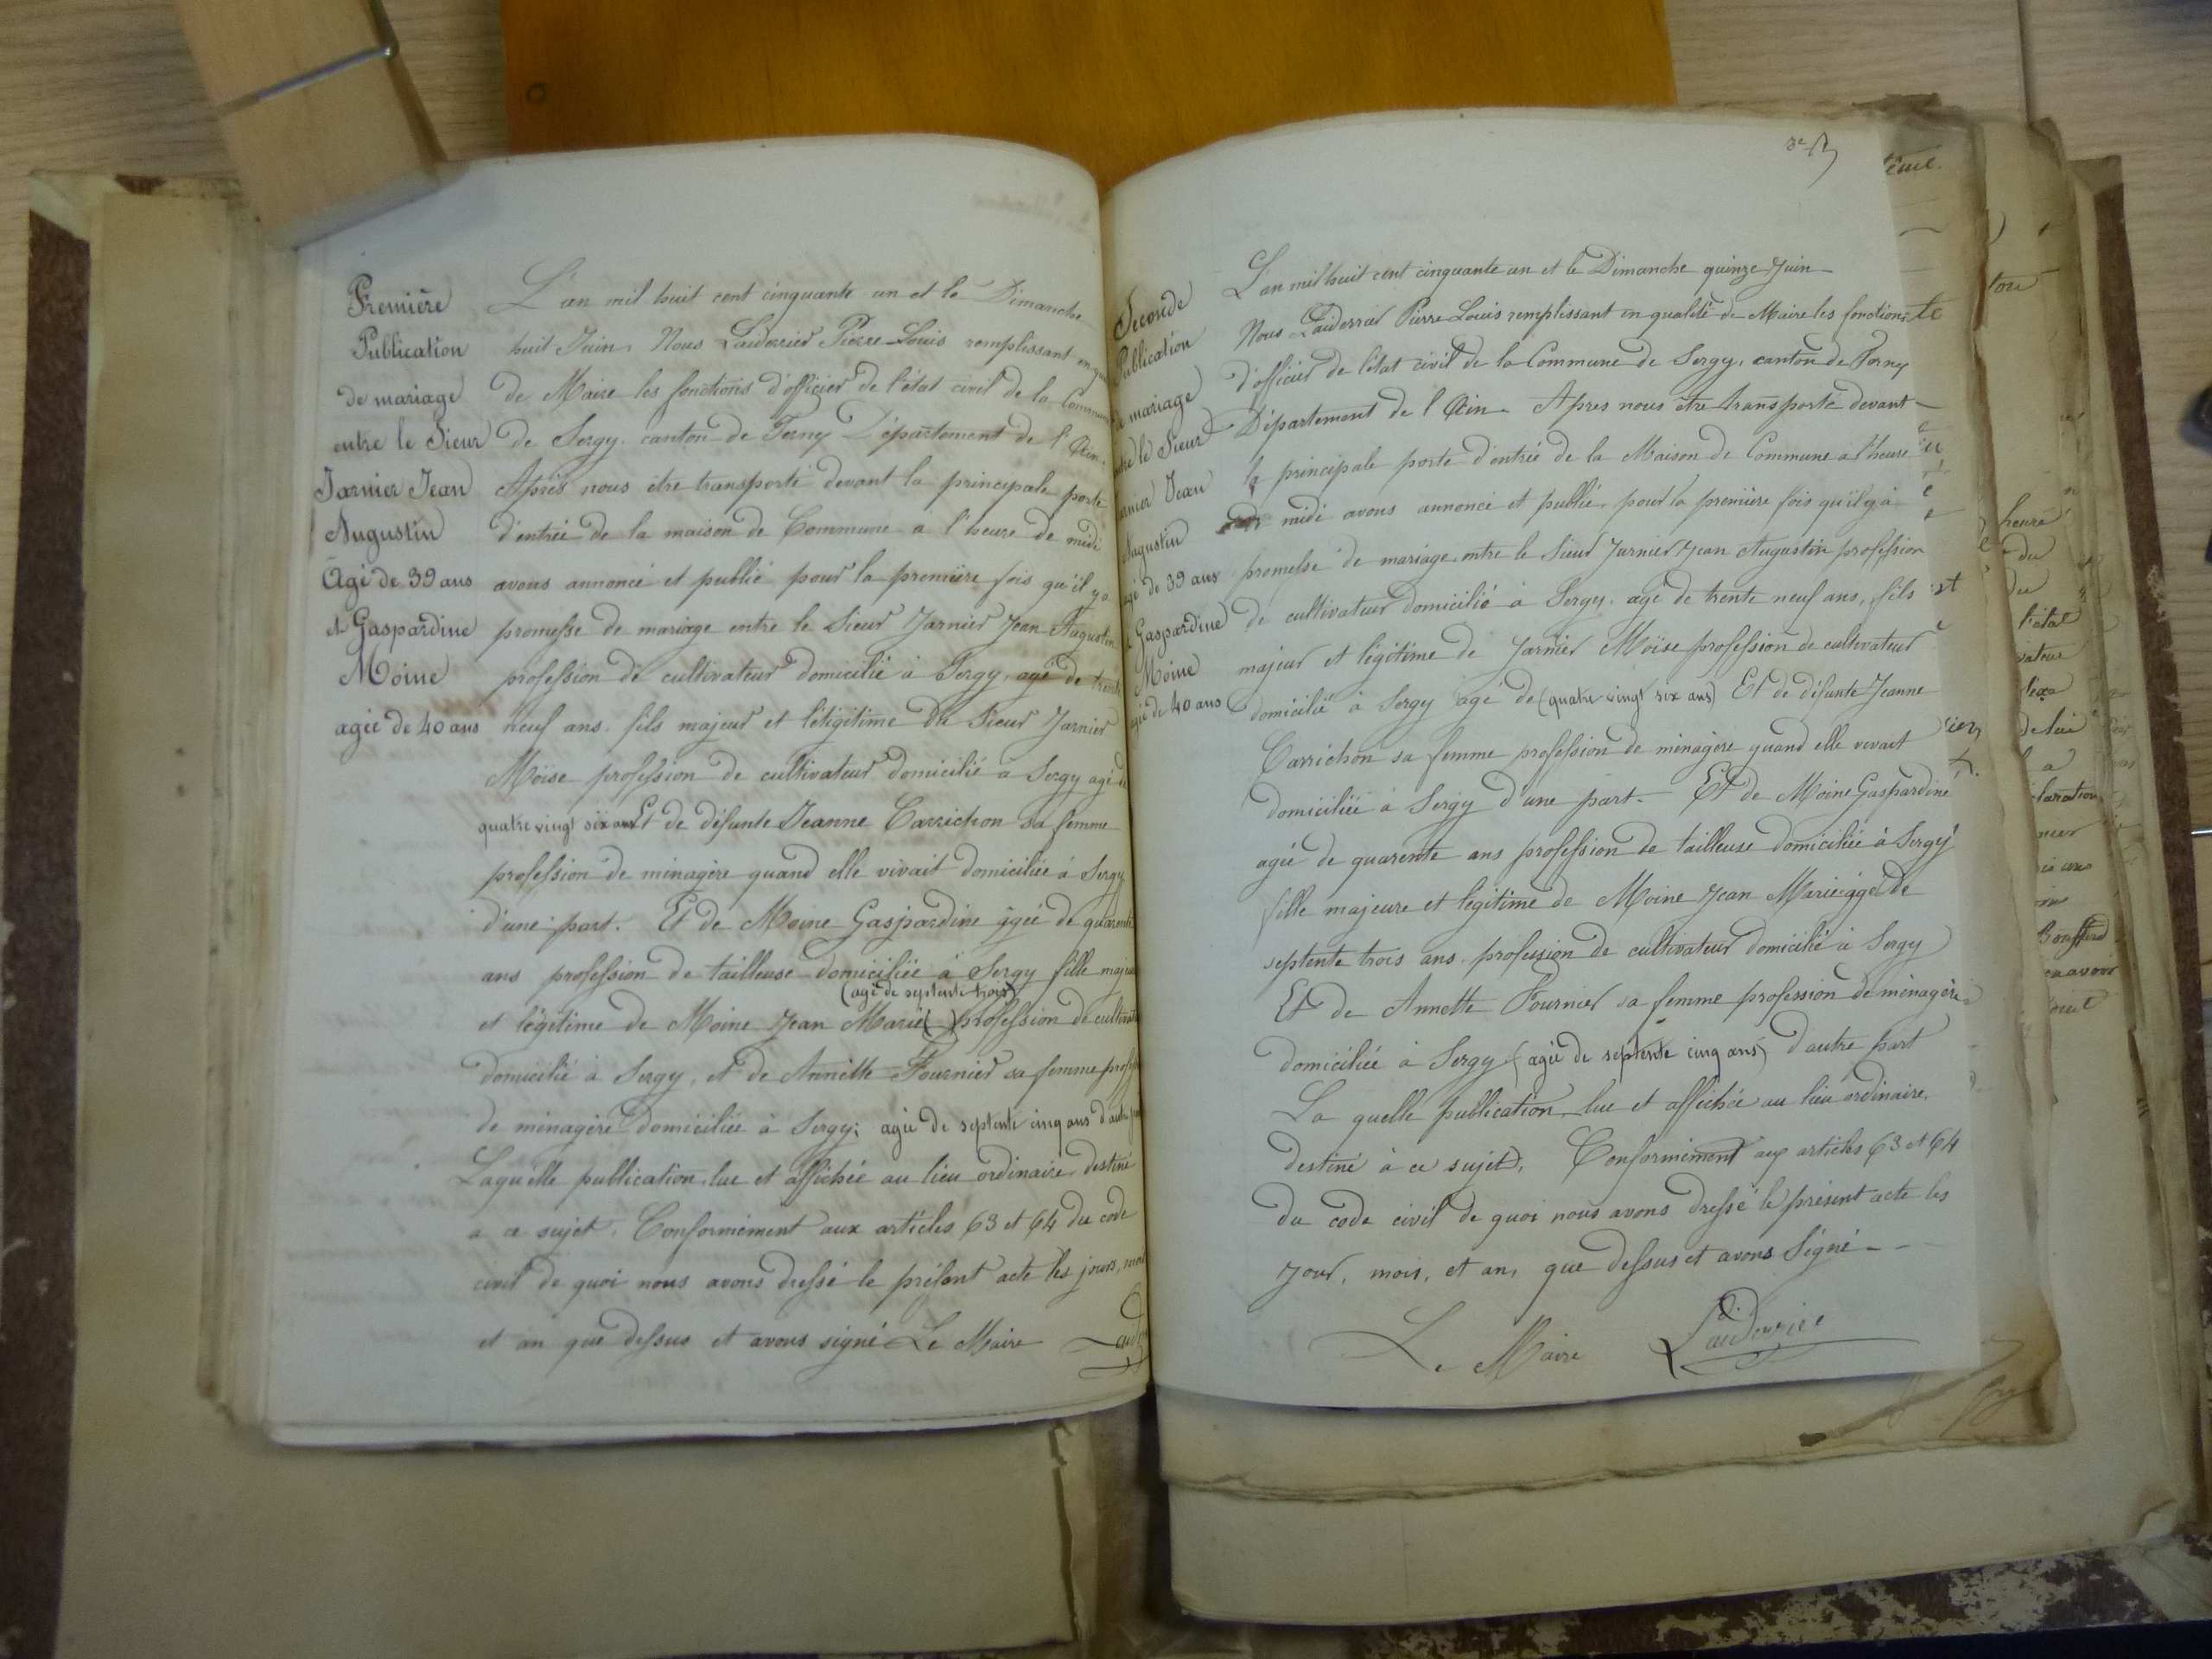 Première
Publication
de mariage
entre le Sieur
Jarnier Jean
Augustin
Agé de 39 ans
et Gaspardine
Moine
agée de 40 ans
L'an mil huit cent cinquante un et le Dimanche
huit Juin, Nous Lauderrier Pierre Louis remplissant en
de Maire les fonctions d'officier de l'état civil de la Commune
de Sergy. canton de Ferney Département de l'Ain.
Après nous être transporté devant la principale porte
d'entrée de la maison de Commune a l'heure de midi
avons annoncé et publié pour la première fois qu'il y a
promesse de mariage entre le Sieur Jarnier Jean Augustin
profession de cultivateur domicilié à Sergy, agé de trente
neuf ans. fils majeur et létigitime du Sieur Jarnier
Moïse profession de cultivateur domicilié à Sergy agé de
quatre vingt six ans Et de défunte Jeanne Carrichon sa femme
profession de ménagère quand elle vivait domiciliée à Sergy
d'une part. Et de Moine Gaspardine agée de quarente
ans profession de tailleuse domiciliée à Sergy fille majeure
(agé de septente trois)
et légitime de Moine Jean Marie ( ) profession de cultivateur
domicilié à Sergy, et de Annette Fournier sa femme
de ménagère domiciliée à Sergy; agée de septente cinq ans d'autre
Laquelle publication, lue et affichée au lieu ordinaire destiné
a ce sujet. Conformément aux articles 63 et 64 du code
civil de quoi nous avons dressé le présent acte les jours, mois
et an que dessus et avons signé Le Maire
3e
Seconde
Publication
de mariage
le Sieur
Jean
Augustin
de 39 ans
Gaspardine
Moine
de 40 ans
L'an mil huit cent cinquante un et le Dimanche quinze Juin
Nous Lauderrier Pierre Louis remplissant en qualité de Maire les fonctions
d'officier de l'état civil de la Commune de Sergy, canton de Ferney
Département de l'Ain. Apres nous être transporté devant
la principale porte d'entrée de la Maison de Commune a l'heure
de midi avons annoncé et publié, pour la première fois qu'il y à
promesse de mariage entre le Sieur Jarnier Jean Augustin profession
de cultivateur domicilié à Sergy. agé de trente neuf ans, fils
majeur et légitime de Jarnier Moïse profession de cultivateur
domicilié à Sergy agé de (quatre vingt six ans) Et de défunte Jeanne
Carrichon sa femme profession de ménagère quand elle vivait
domiciliée à Sergy d'une part. Et de Moine Gaspardine
agée de quarente ans profession de tailleuse domiciliée à Sergy
fille majeure et légitime de Moine Jean Marie âgé de
septente trois ans. profession de cultivateur domicilié à Sergy
Et de Annette Fournier sa femme profession de ménagère
domiciliée à Sergy (agée de septente cinq ans) d'autre part
La quelle publication, lue et affichée au lieu ordinaire,
destiné à ce sujet, Conformément aux articles 63 et 64
du code civil de quoi nous avons dressé le présent acte les
jour, mois, et an, que dessus et avons signé
Le Maire Lauderrier
heure
du
du
l'état